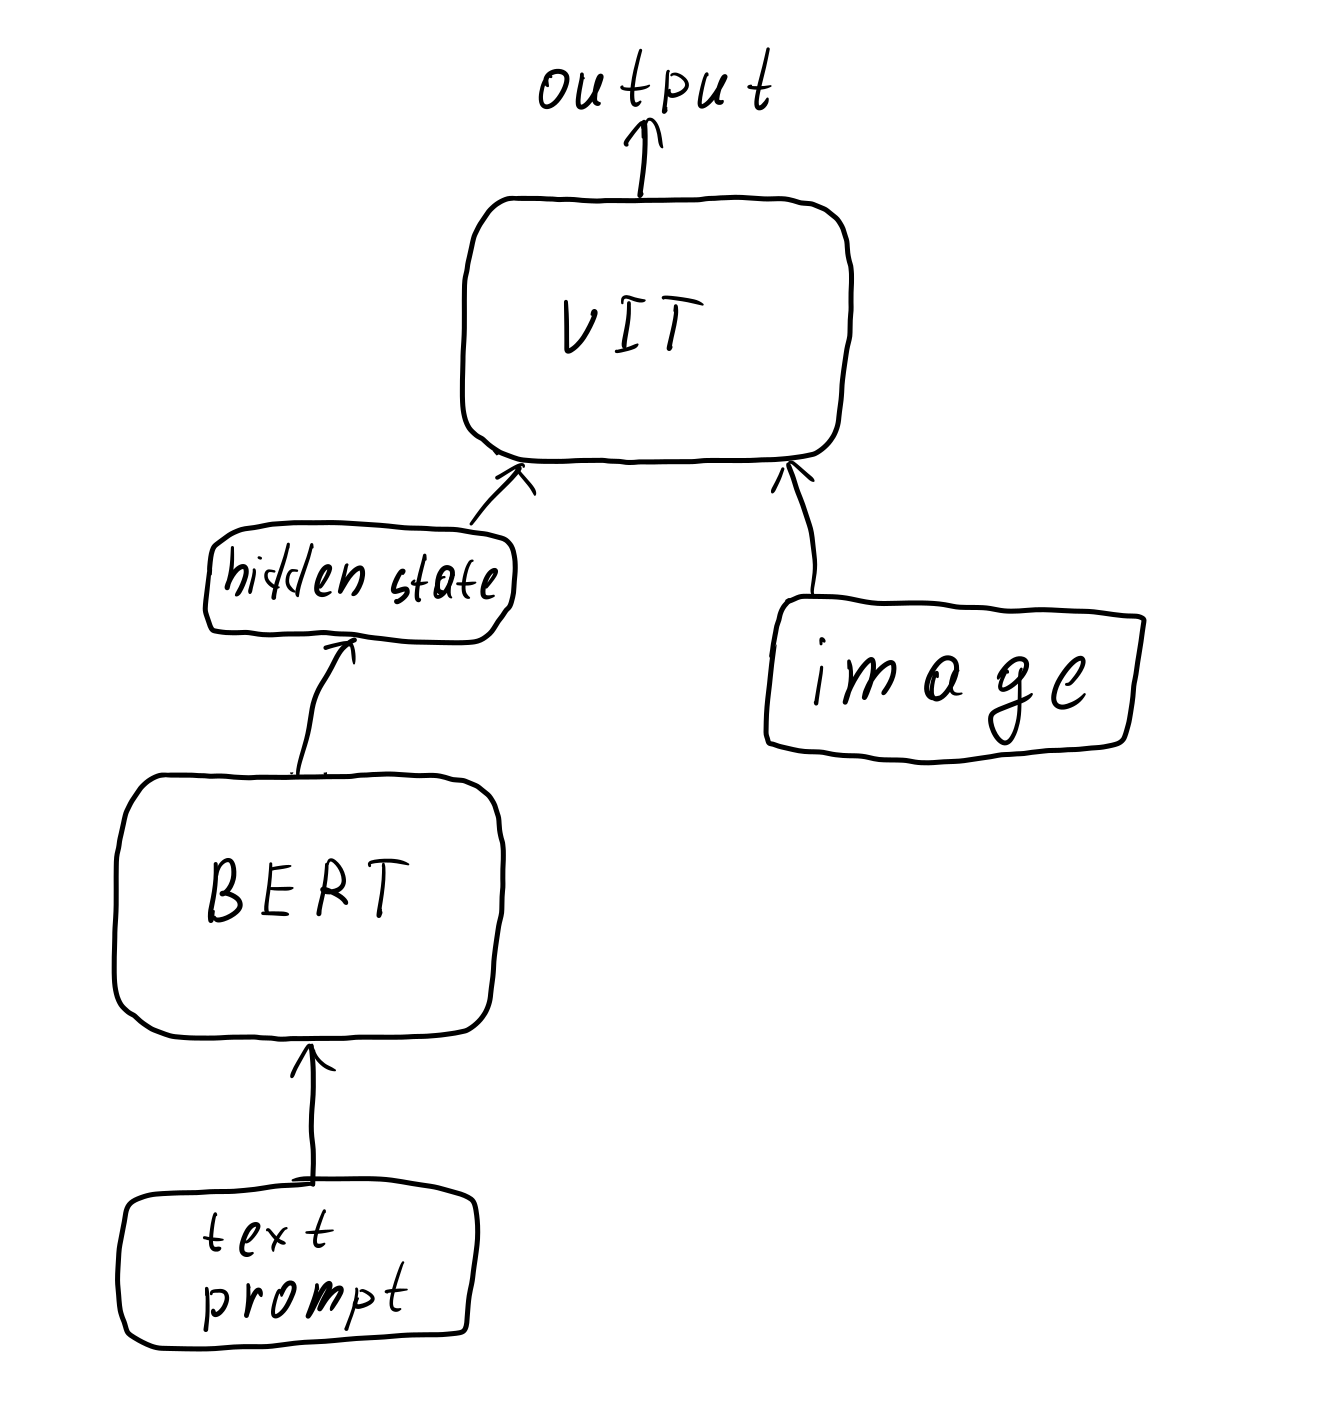 output
VIT
hidden state
image
BERT
text
prompt